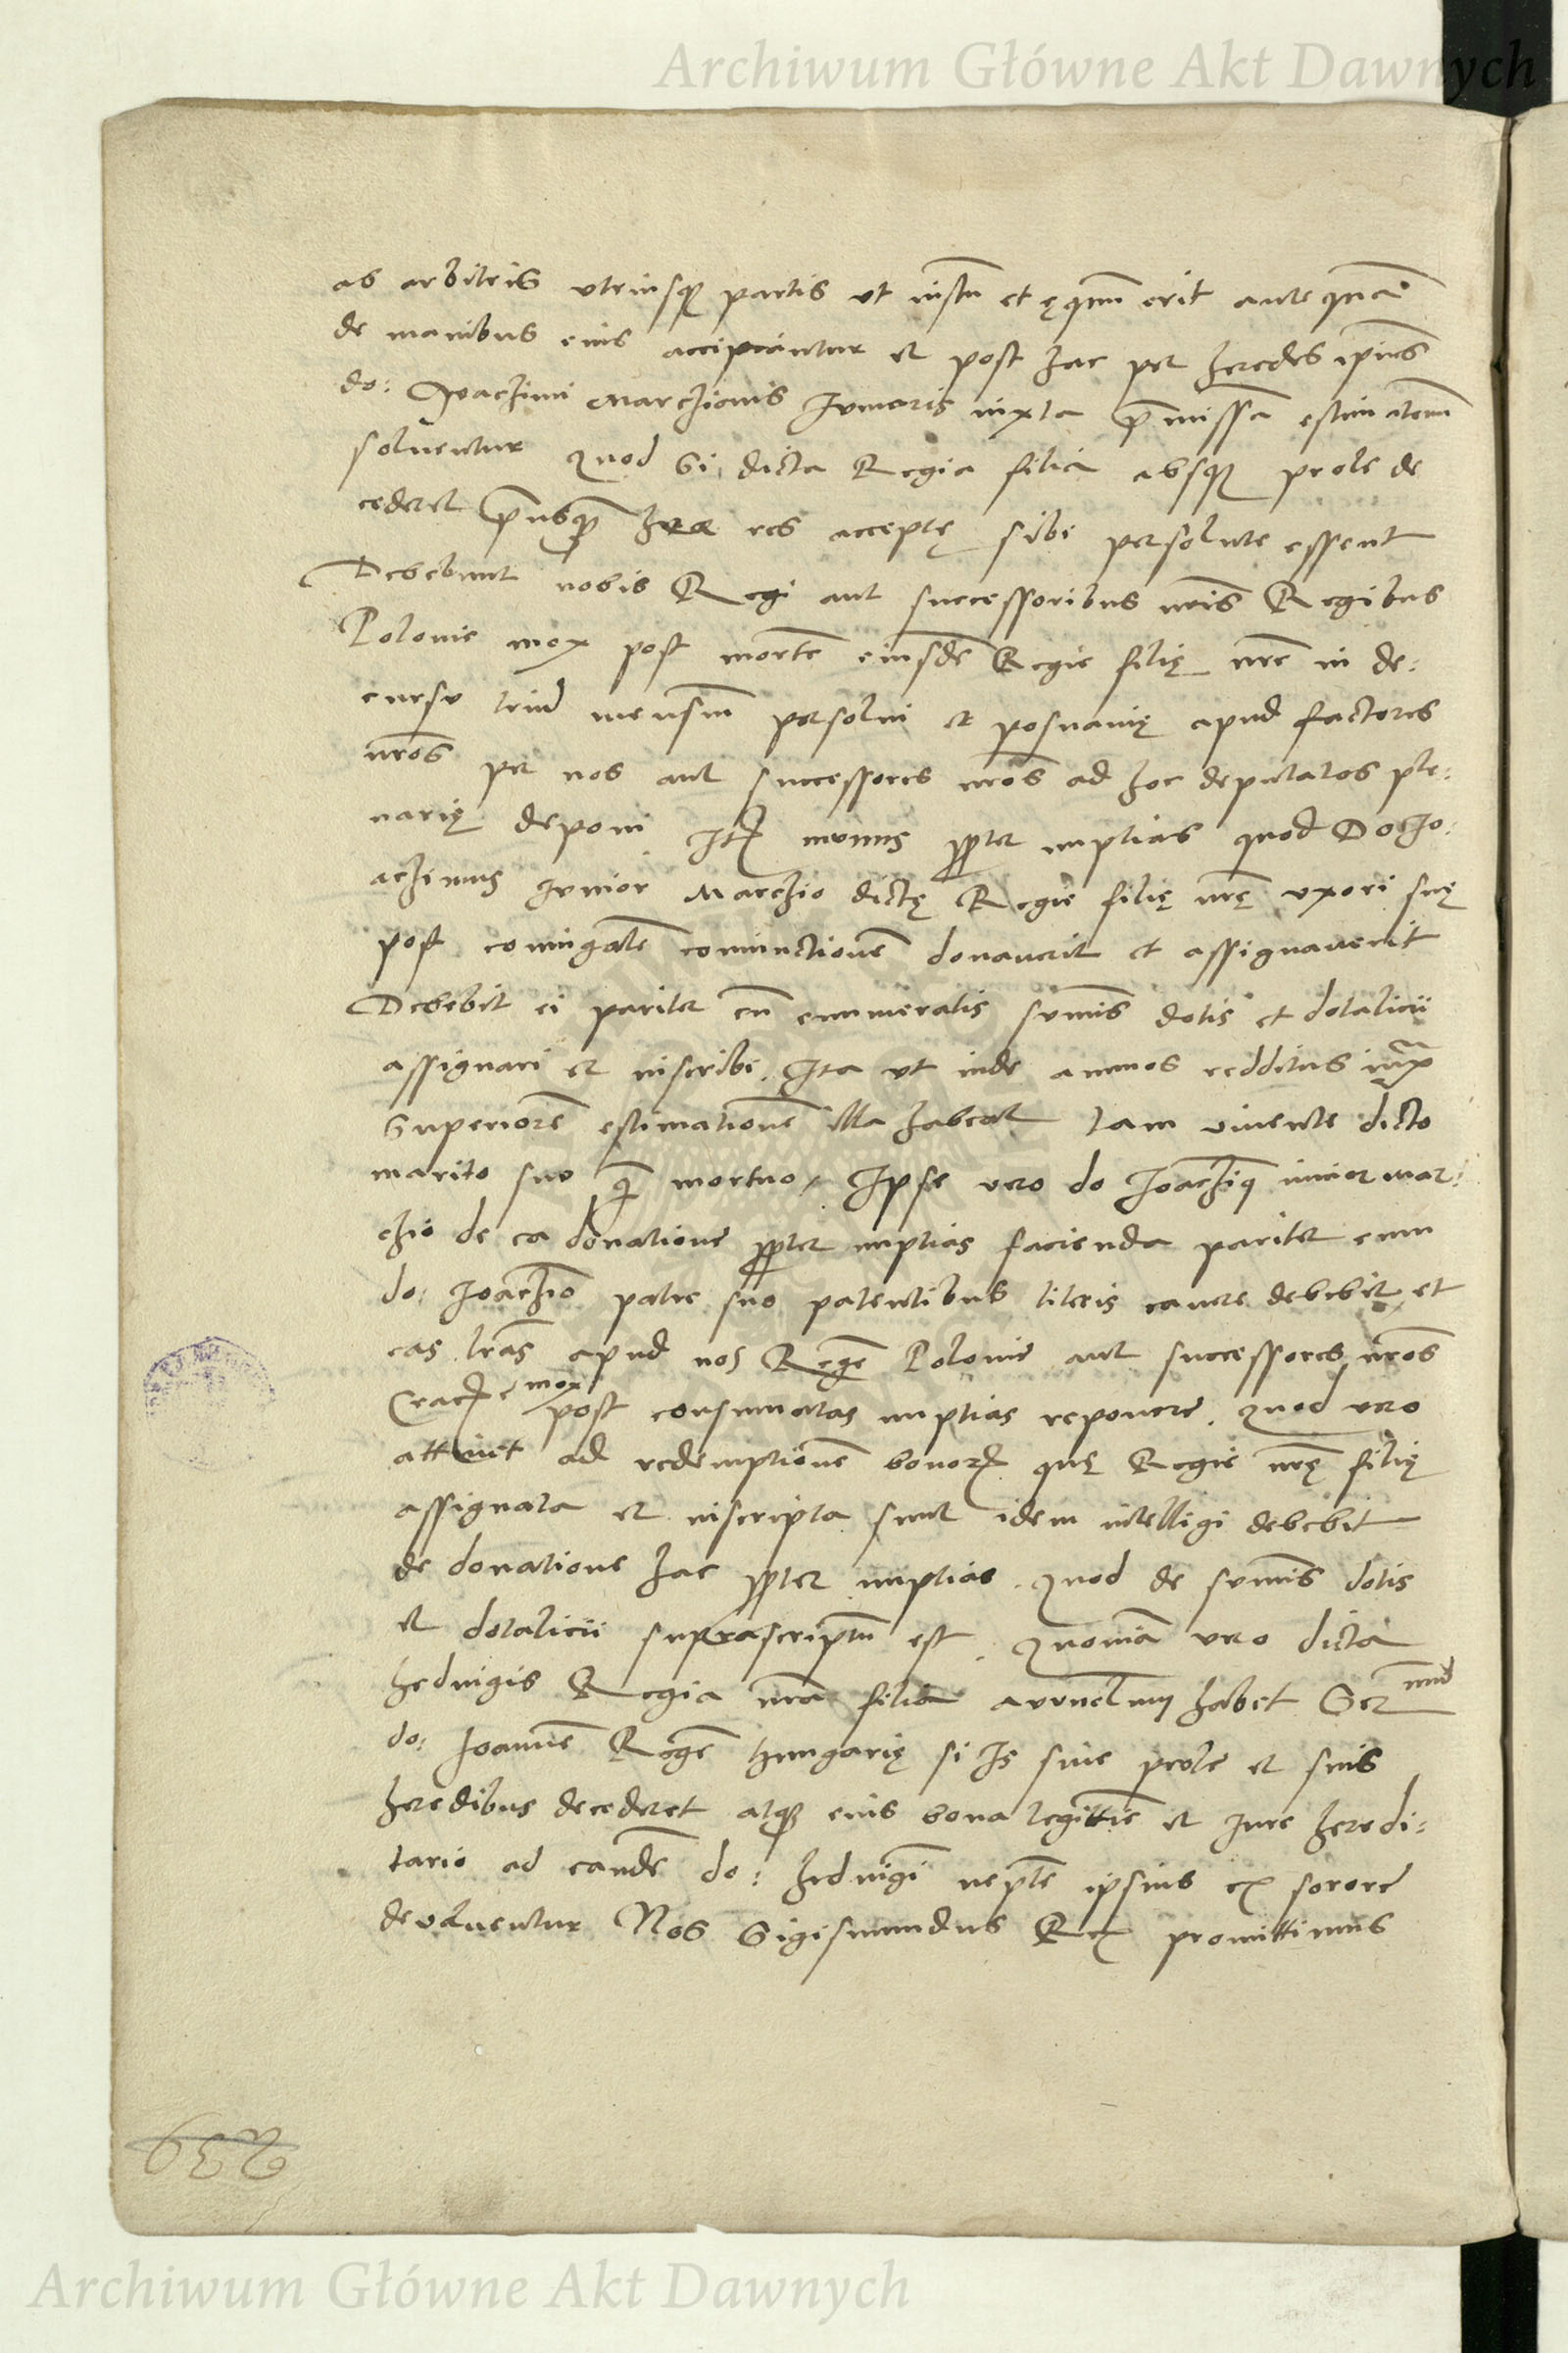 Archiwum Główne Akt Dawnych
ab arbitris utriusq; partis ut iustu et ęquu erit anteqnã
de manibus eius accipiantur et post hac per heredes ipius
do: Joachimi Marchionis Junioris iuxta p̃missã estimationem
soluentur Quod si dicta Regia filia absq; prole de
cederet priusq̃ hae res acceptę sibi persolute essent
Debebunt nobis Regi aut successoribus nr̃is Regibus
Polonie mox post mortẽ eiusdẽ Regie filię nr̃e in de:
cursu triũ mensiũ persolui et posnanię apud factores
nr̃os per nos aut successores nr̃os ad hoc deputatos ple:
narię deponi Itẽ munus ꝓpter nuptias quod Do Jo:
achimus Junior Marchio dictę Regie filię nr̃ę uxori suę
post coniugalẽ coniunctionẽ donauerit et assignauerit
Debebit ei pariter cũ enumeratis sum̃is dotis et dotalicii
assignari et inscribi. Ita ut inde annuos redditus iuxᵃ
superiorẽ estimationẽ illa habeat tam viuente dicto
marito suo q̃ mortuo, Ipse vero do Joachimꝰ iunior mar:
chio de ea donatione ꝓpter nuptias facienda pariter cum
do: Joachĩo patre suo patentibus literis cauere debebit et
eas lr̃as apud nos Regẽ Polonie aut successores nr̃os
Crac̃ie mox post consumatas nuptias reponere. Quod vero
attinet ad redemptionẽ bonor̃ quę Regie nr̃ę filię
assignata et inscripta sunt idem intelligi debebit
de donatione hac ꝓpter nuptias. Quod de sum̃is dotis
et dotalicii suprascriptũ est. Quoniã vero dicta
hedwigis Regia nr̃a filia avunculum habet Ser mũ
do: Joannẽ Regẽ Hungarię si Is sine prole et suis
heredibus decederet atq; eius bona legittĩe et Jure heredi:
tario ad eandẽ do: hedwigẽ neptẽ ipsius ex sorore
devoluentur Nos Sigismundus Rex promittimus
239
Archiwum Główne Akt Dawnych